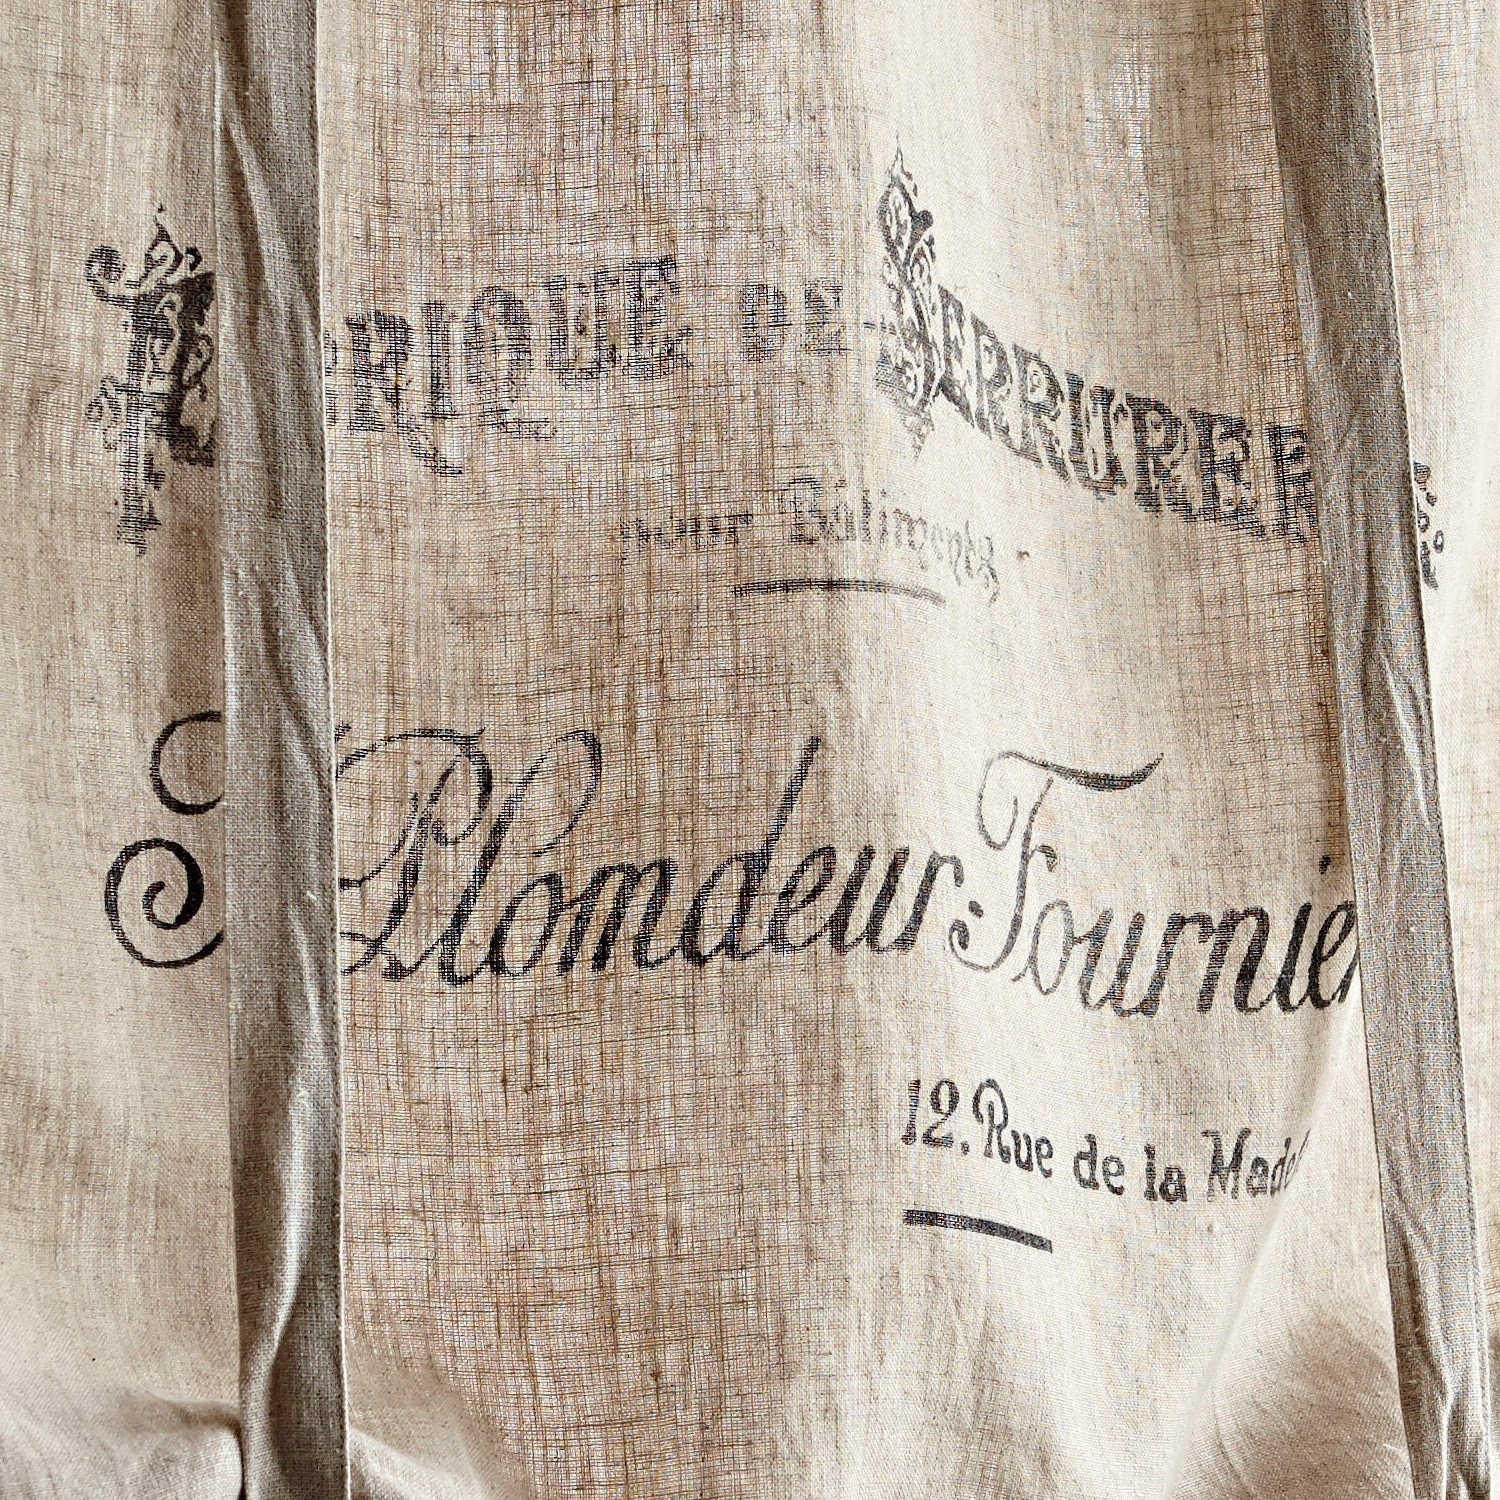 F RIQUE DE SERRURER
pour Bâtiments
Plomdeur-Fournier
12. Rue de la Made